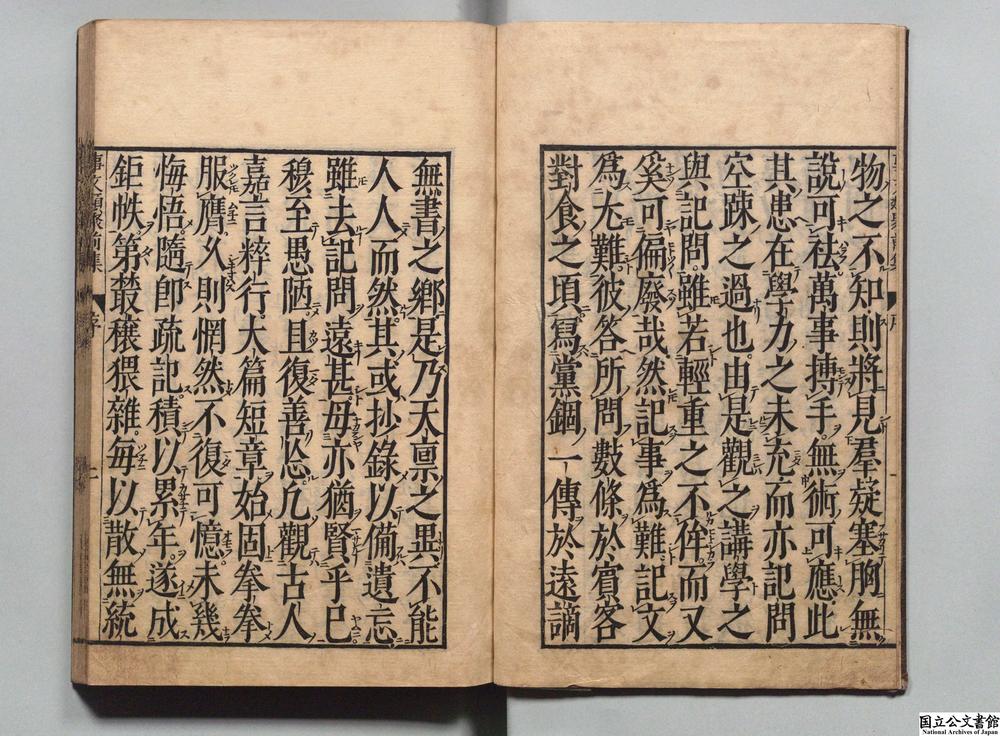 物之不知則將見羣疑塞胸無
說可祛萬事摶手無術可應此
其患在學力之未充而亦記問
空疎之過也由是觀之講學之
與記問雖若輕重之不侔而又
奚可偏廢哉然記事爲難記文
爲尤難彼答所問數條於賓客
對食之項寫黨錮一傳於遠謫
無書之鄉是乃天禀之異不能
人人而然其或抄錄以備遺忘
雖去記問遠甚毋亦猶賢乎已
穆至愚陋且復善忘凢觀古人
嘉言粹行大篇短章始固拳拳
服膺久則惘然不復可憶未幾
悔悟隨卽疏記積以累年遂成
鉅帙第叢穰猥雜每以散無統
事文類聚前集
序
二
国立公文書館
National Archives of Japan